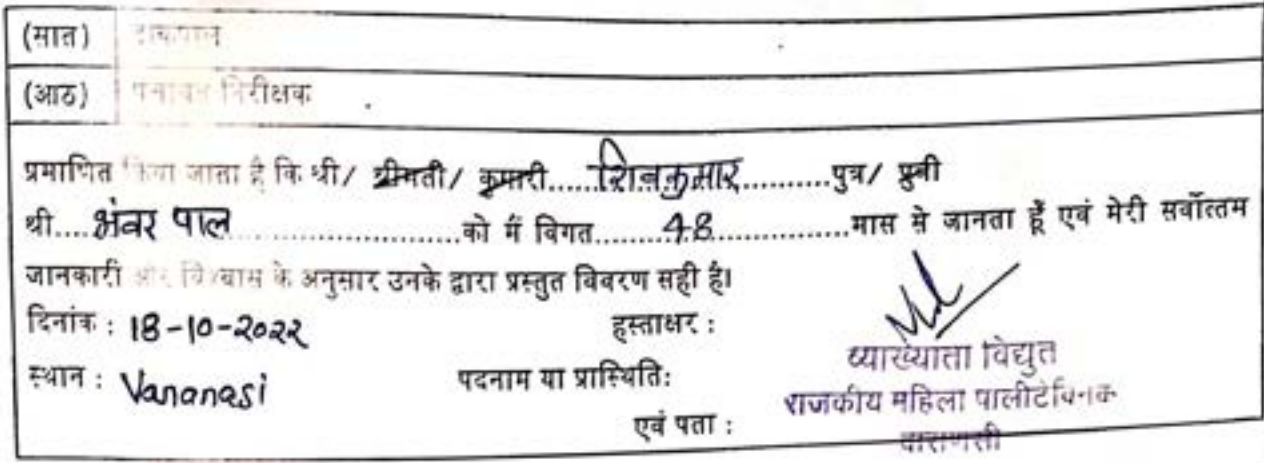 (सात) डाकपाल
(आठ) पंचायत निरीक्षक
प्रमाणित किया जाता है कि श्री/ श्रीमती/ कुमारी......शिवकुमार............पुत्र/ पुत्री
श्री....भंवर पाल..........................को मैं विगत.........48..............मास से जानता हूँ एवं मेरी सर्वोत्तम
जानकारी और विश्वास के अनुसार उनके द्वारा प्रस्तुत विवरण सही है।
दिनांक : 18-10-2022 हस्ताक्षर :
स्थान : Varanasi पदनाम या प्रास्थिति:
व्याख्याता विद्युत
राजकीय महिला पालीटेक्निक
एवं पता : वाराणसी